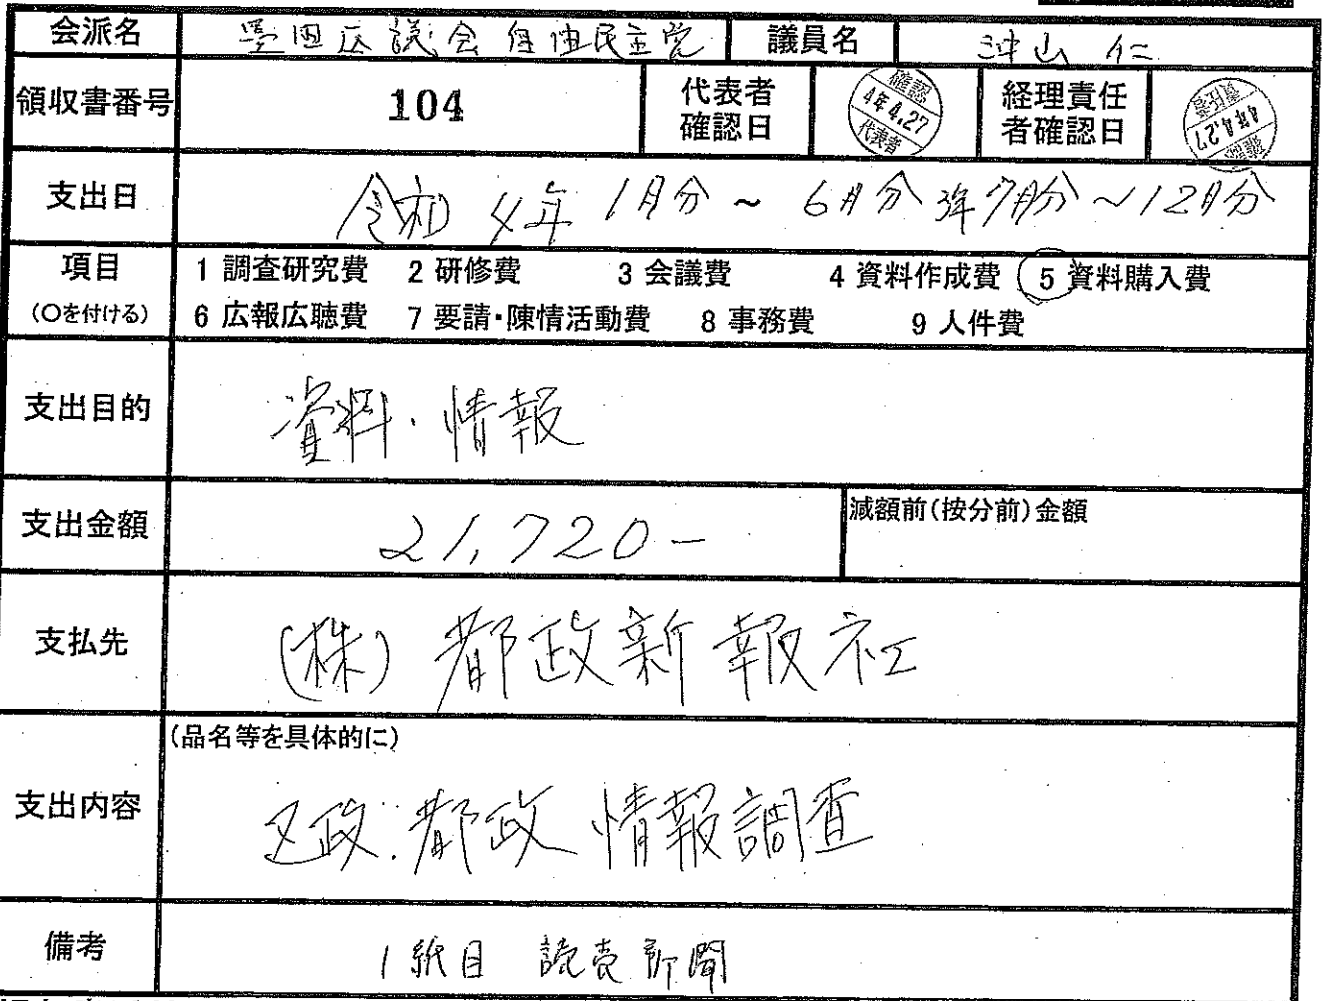 会派名 墨田区議会自由民主党 議員名 沖山 仁
領収書番号 104 代表者確認日 確認 4年4.27 代表者 経理責任者確認日 4年4.27
支出日 令和4年 1月分～6月分 3年7月分～12月分
項目 1 調査研究費 2 研修費 3 会議費 4 資料作成費 5 資料購入費
(○を付ける) 6 広報広聴費 7 要請・陳情活動費 8 事務費 9 人件費
支出目的 資料・情報
支出金額 21,720- 減額前(按分前)金額
支払先 (株)都政新報社
(品名等を具体的に)
支出内容 区政・都政 情報調査
備考 1紙目 読売新聞